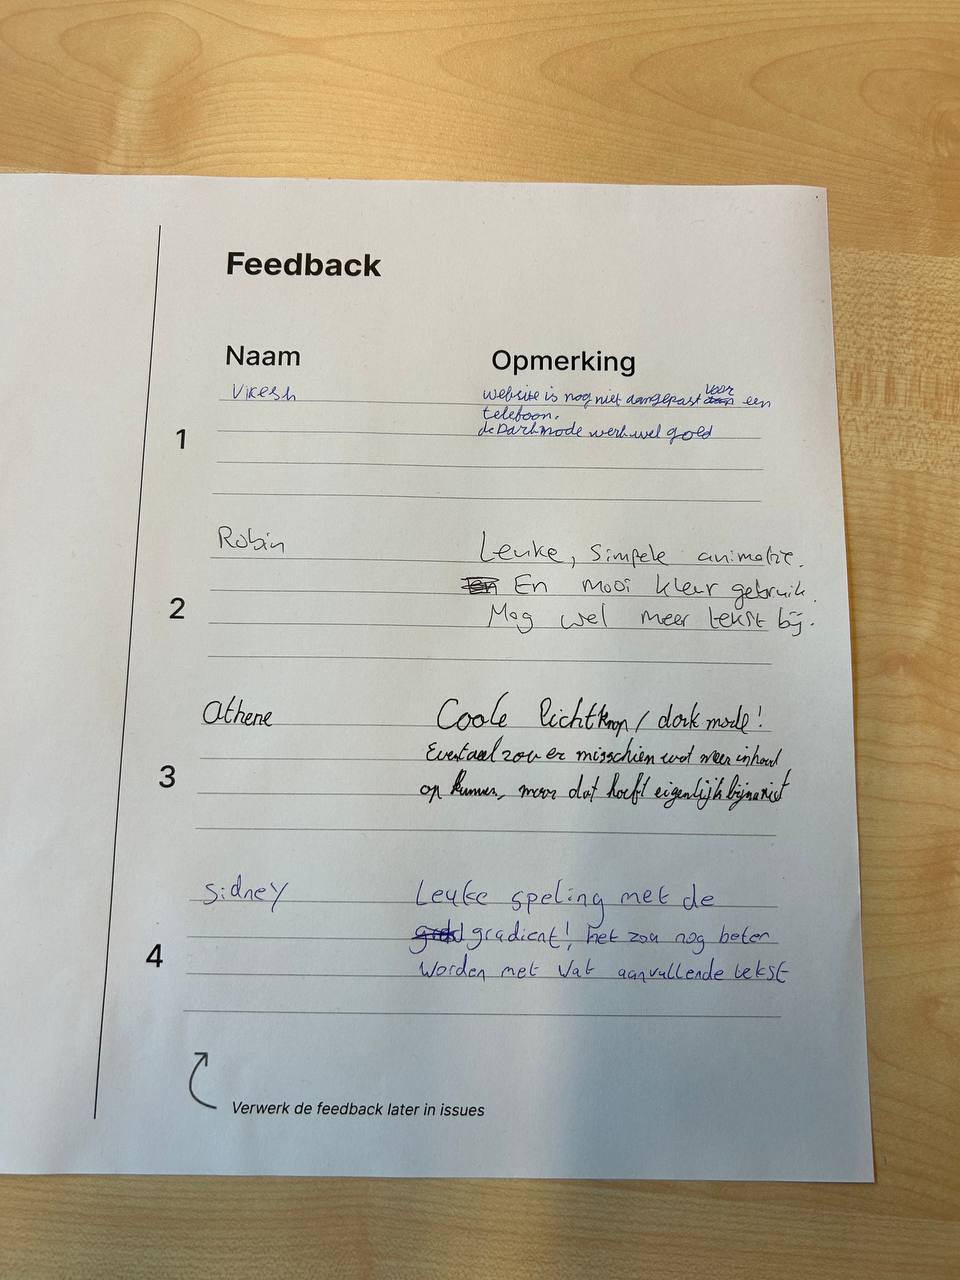 Feedback
Naam Opmerking
1
Vikesh
website is nog niet aangepast voor een
telefoon.
de Darkmode werk wel goed
2
Robin
Leuke, simpele animatie.
En mooi kleur gebruik.
Mog wel meer tekst bij.
3
Athene
Coole lichtknop / dark mode!
zou er misschien wat meer inhoud
op kunnen, maar dat hoeft eigenlijk bijna niet
4
Sidney
Leuke speling met de
gradient! het zou nog beter
worden met wat aanvullende tekst
Verwerk de feedback later in issues